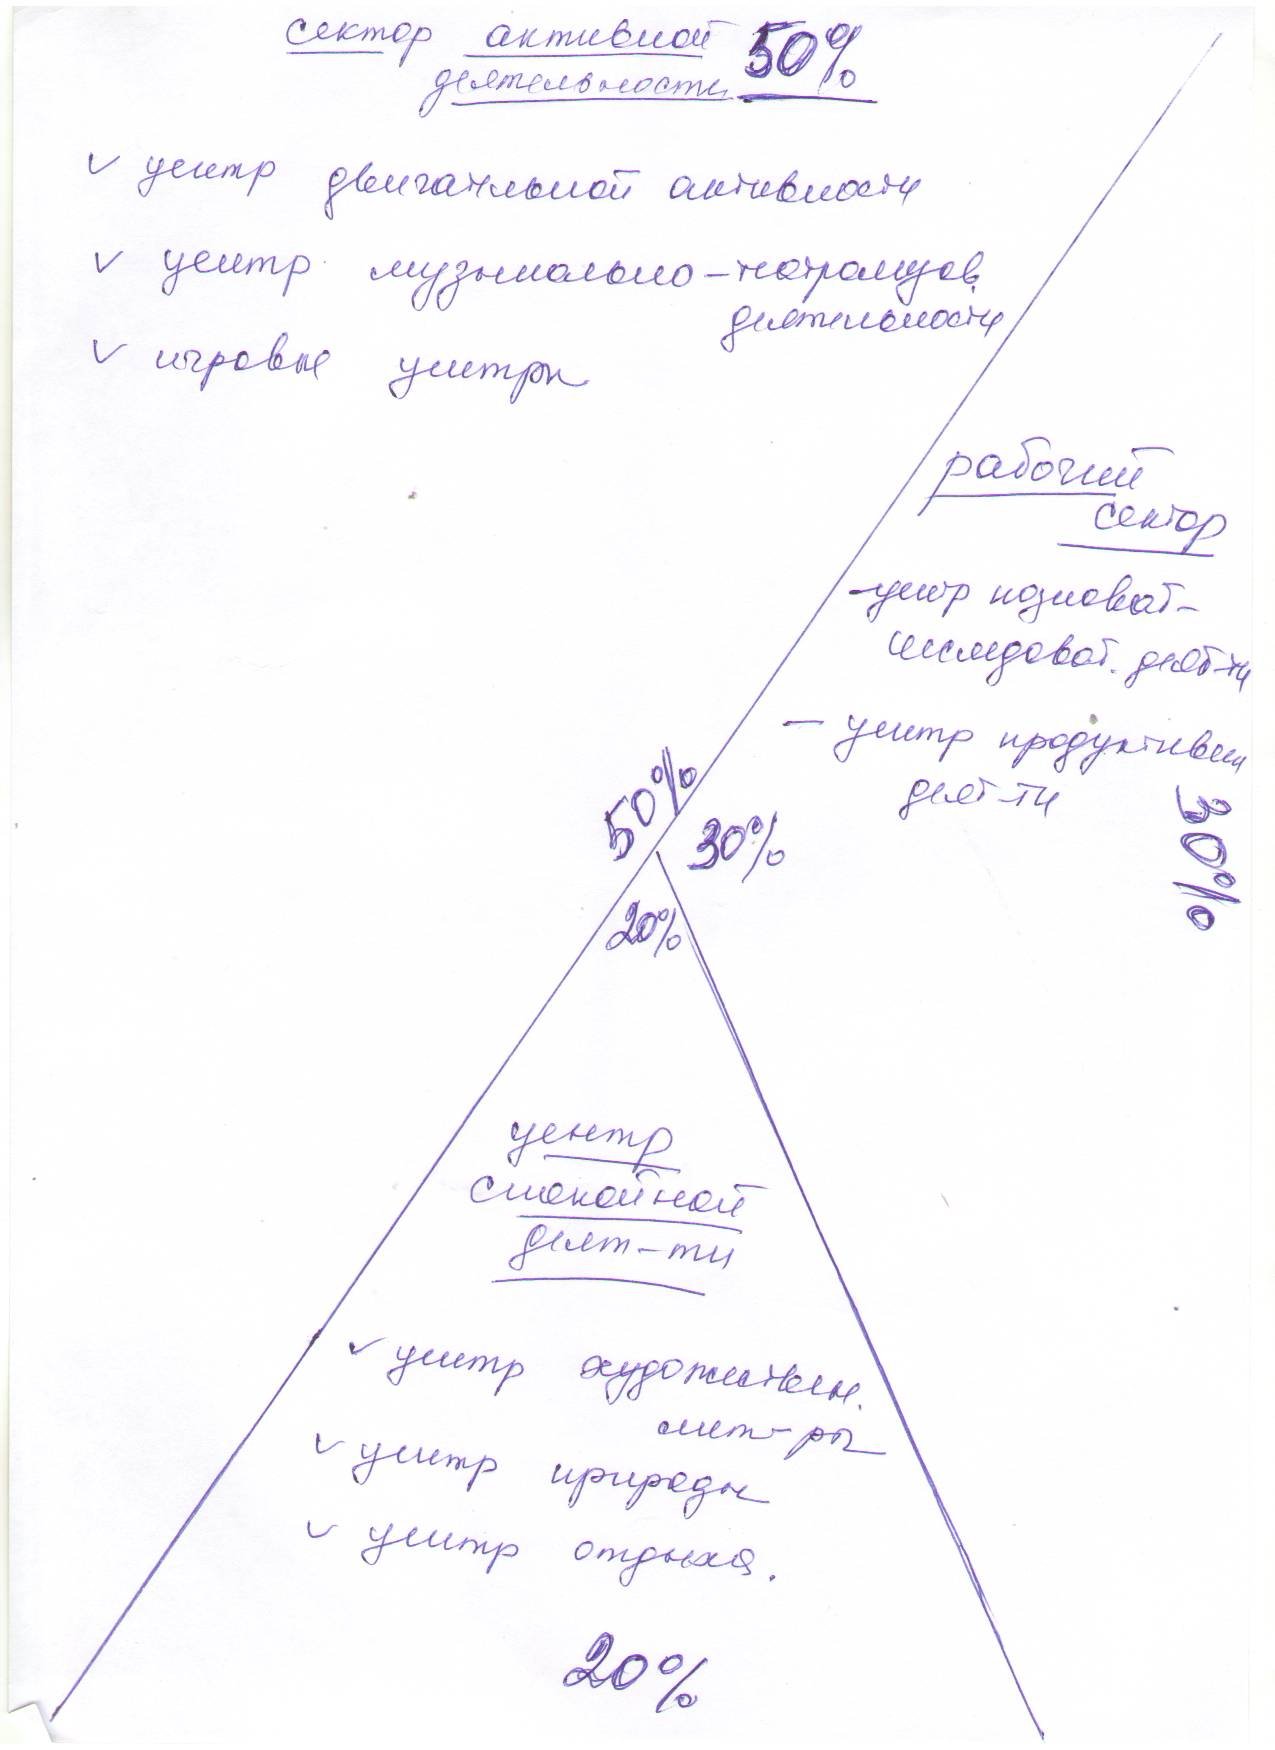 сектор активной 50%
деятельности
✓ центр двигательной активности
✓ центр музыкально-театрализов.
деятельности
✓ игровые центры
рабочий
сектор
- центр познават-
исследоват. деят-ти
- центр продуктивн
деят-ти
30%
50%
30%
20%
центр
спокойной
деят-ти
✓ центр художествен.
лит-ры
✓ центр природы
✓ центр отдыха.
20%